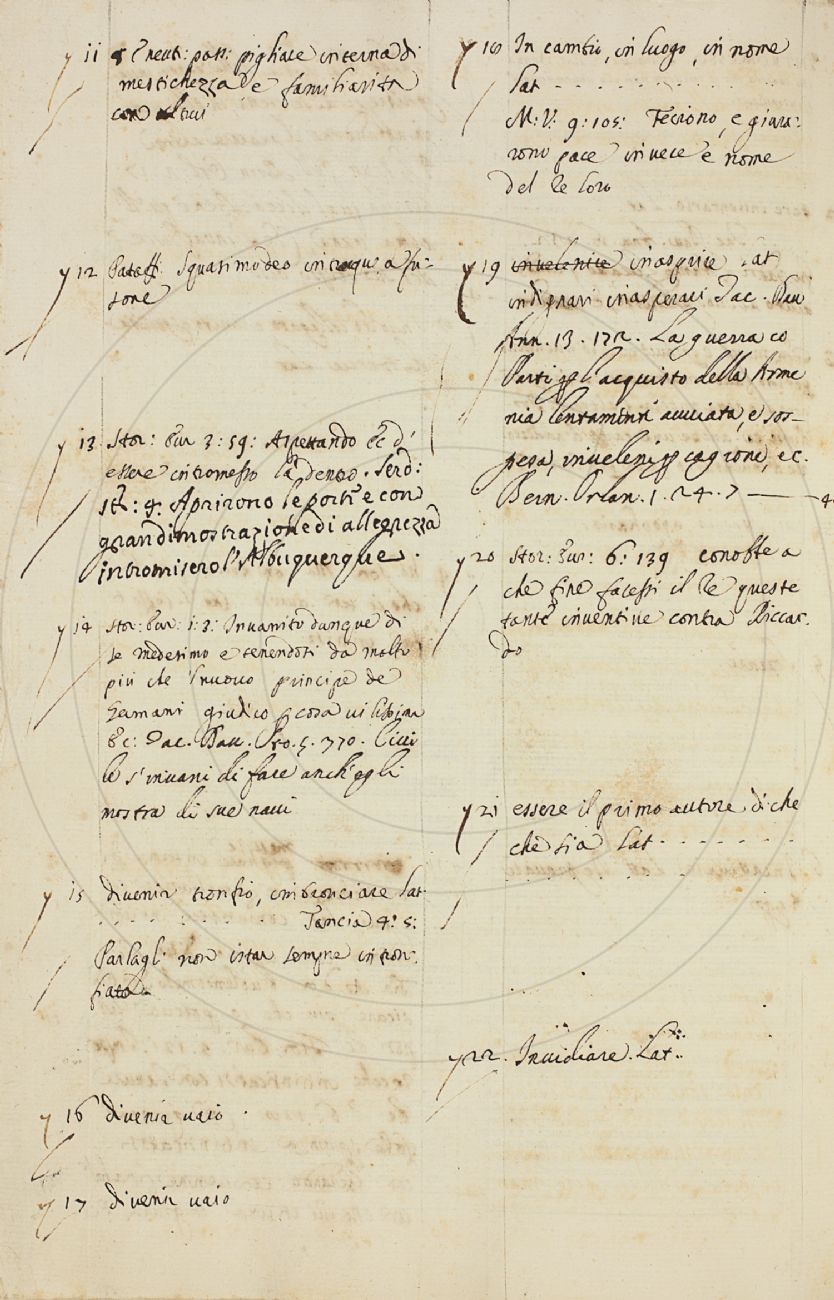 y 11 § E neut: pass: pigliare interna di
mestichezza e familiarità
con altrui
y 12 Pataff. Squasimodeo introcqu: a fu-
sone
y 13 Stor: Eur 3: 59: Aspettando &c d'
essere intromesso là dentro. Serd:
St: 4: Aprirono le porti e con
grandimostrazione di allegrezza
intromisero l'Albuquerque.
y 14 Stor: Eur: 1: 3: Invanito dunque di
se medesimo e tenendosi da molto
più che 'l nuovo principe de
Germani giudicò cosa vilissima
&c: Dac. Dav. 5. 770.
le s'invanì di fare anch'egli
mostra di sue navi
y 15 divenir tronfio, imbronciare Lat.
- - - - - - - - Tancia 4: 5:
Parlagli non istar sempre intron-
fiata
y 16 divenir vaio.
y 17 divenir vaio
y 18 In cambio, in luogo, in nome
Lat - - - - - - - - - -
M: V: 9: 105: Feciono, e giura-
rono pace in vece e nome
del Re loro
y 19 inasprire Lat
indignari inasperari Dac. Dav
Ann. 13. 172. La guerra co
Parti p gli acquisto della Arme
nia lentamente avviata, e sos-
pesa, p cagione, ec.
Bern. Orlan. 1. 24. 7 —— 4
y 20 Stor: Eur: 6: 139 conobbe a
che fine facessi il Re queste
tante inventive contra Riccar-
do
y 21 essere il primo autore di che
che sia Lat - - - - - - -
- - - - - - - - - - - -
y 22. Invidiare. Lat..